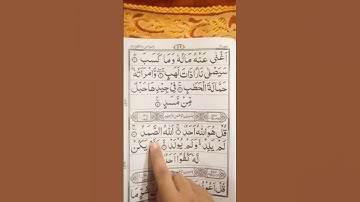 اَغْنٰى عَنْهُ مَالُهٗ وَمَا كَسَبَ
سَيَصْلٰى نَارًا ذَاتَ لَهَبٍ وَّامْرَاَتُهٗ
حَمَّالَةَ الْحَطَبِ فِيْ جِيْدِهَا حَبْلٌ
مِّنْ مَّسَدٍ
قُلْ هُوَ اللّٰهُ اَحَدٌ اَللّٰهُ الصَّمَدُ
لَمْ يَلِدْ وَلَمْ يُوْلَدْ يَكُنْ
لَّهٗ كُفُوًا اَحَدٌ
قُلْ اَعُوْذُ